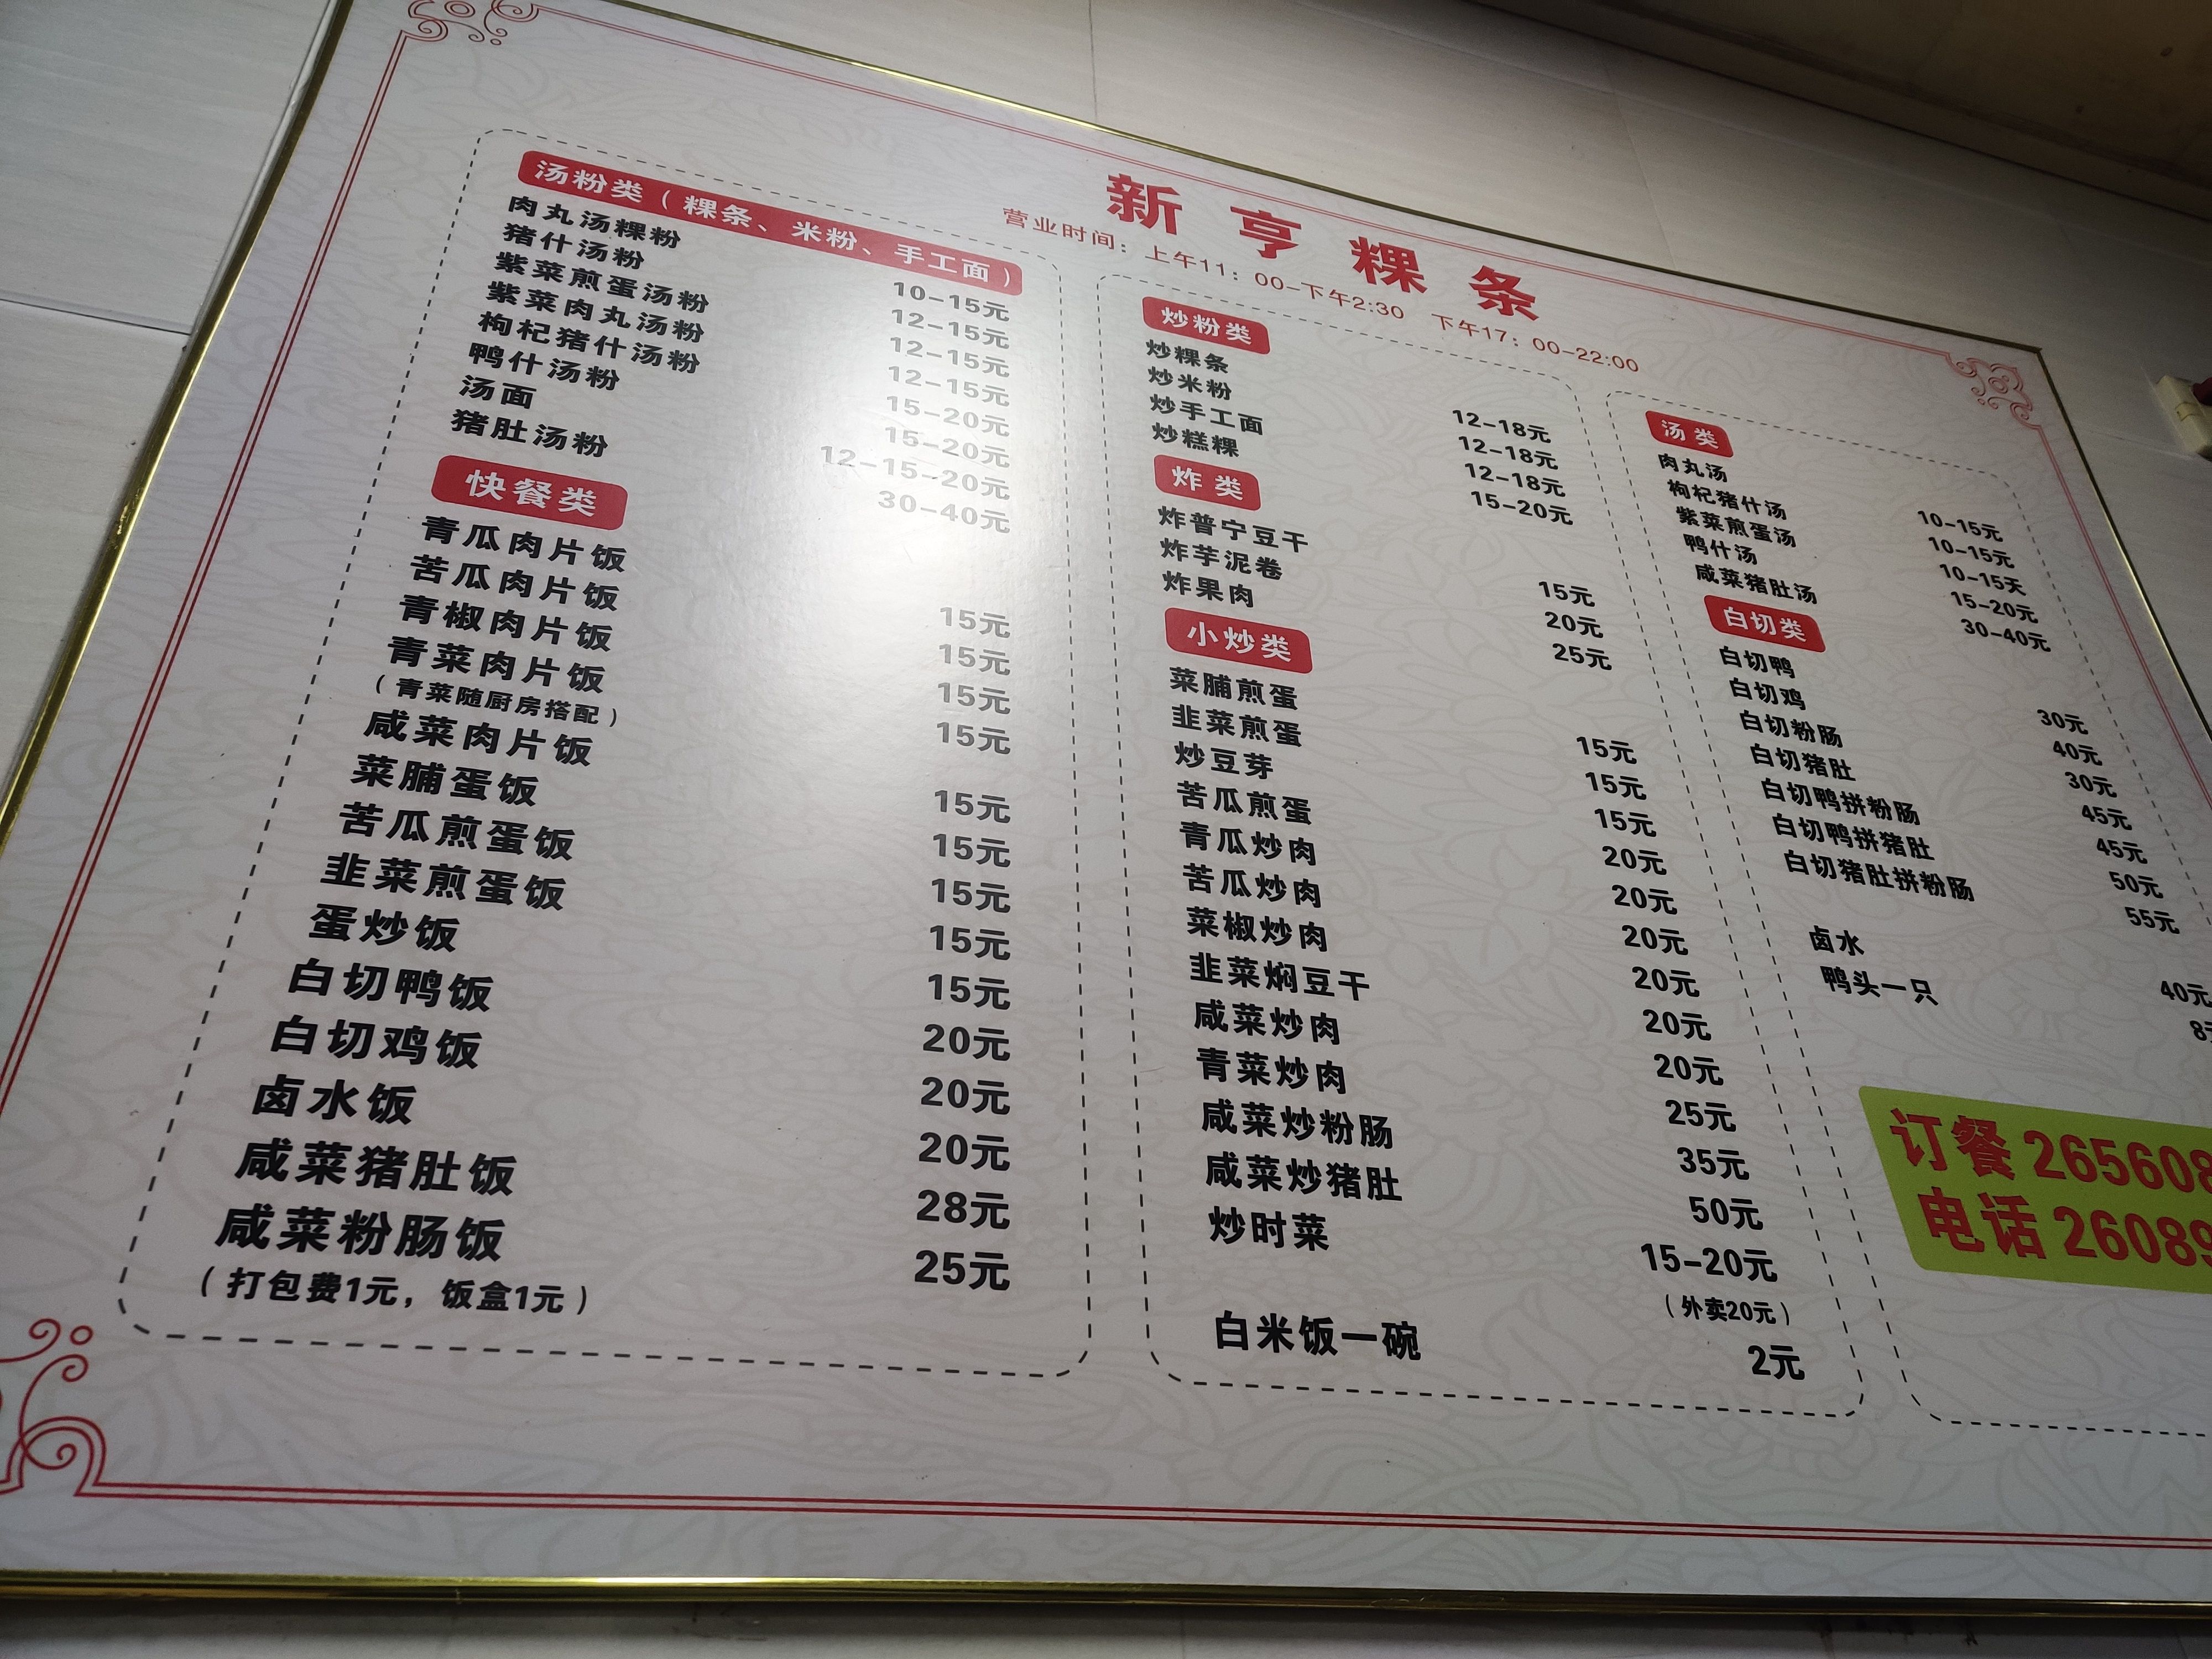 新亨粿条
营业时间：上午11：00-下午2:30 下午17：00-22:00
汤粉类（粿条、米粉、手工面）
肉丸汤粿粉 10-15元
猪什汤粉 12-15元
紫菜煎蛋汤粉 12-15元
紫菜肉丸汤粉 12-15元
枸杞猪什汤粉 15-20元
鸭什汤粉 15-20元
汤面 12-15-20元
猪肚汤粉 30-40元
快餐类
青瓜肉片饭 15元
苦瓜肉片饭 15元
青椒肉片饭 15元
青菜肉片饭 15元
（青菜随厨房搭配）
咸菜肉片饭 15元
菜脯蛋饭 15元
苦瓜煎蛋饭 15元
韭菜煎蛋饭 15元
蛋炒饭 15元
白切鸭饭 20元
白切鸡饭 20元
卤水饭 20元
咸菜猪肚饭 28元
咸菜粉肠饭 25元
（打包费1元，饭盒1元）
炒粉类
炒粿条 12-18元
炒米粉 12-18元
炒手工面 12-18元
炒糕粿 15-20元
炸类
炸普宁豆干 15元
炸芋泥卷 20元
炸果肉 25元
小炒类
菜脯煎蛋 15元
韭菜煎蛋 15元
炒豆芽 15元
苦瓜煎蛋 20元
青瓜炒肉 20元
苦瓜炒肉 20元
菜椒炒肉 20元
韭菜焖豆干 20元
咸菜炒肉 20元
青菜炒肉 25元
咸菜炒粉肠 35元
咸菜炒猪肚 50元
炒时菜 15-20元
（外卖20元）
白米饭一碗 2元
汤类
肉丸汤 10-15元
枸杞猪什汤 10-15元
紫菜煎蛋汤 10-15天
鸭什汤 15-20元
咸菜猪肚汤 30-40元
白切类
白切鸭 30元
白切鸡 40元
白切粉肠 30元
白切猪肚 45元
白切鸭拼粉肠 45元
白切鸭拼猪肚 50元
白切猪肚拼粉肠 55元
卤水 40元
鸭头一只 8
订餐 265608
电话 26089